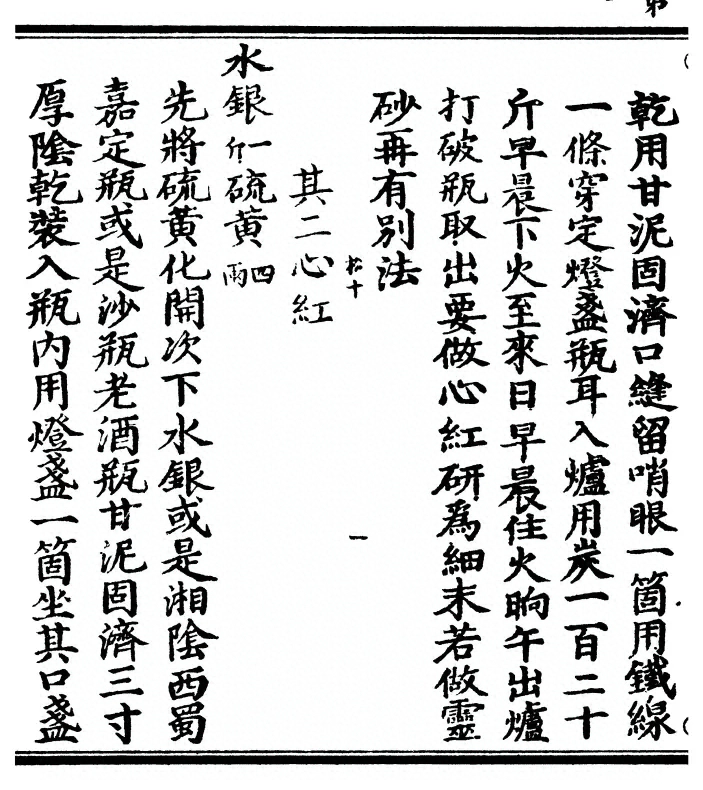 乾用甘泥固濟口縫留哨眼一箇用鐵線
一條穿定燈盞瓶耳入爐用炭一百二十
斤早晨下火至來日早晨住火晌午出爐
打破瓶取出要做心紅研爲細末若做靈
砂再有別法
其二心紅
水銀一斤硫黄四兩
先將硫黄化開次下水銀或是湘陰西蜀
嘉定瓶或是沙瓶老酒瓶甘泥固濟三寸
厚陰乾裝入瓶內用燈盞一箇坐其口盞